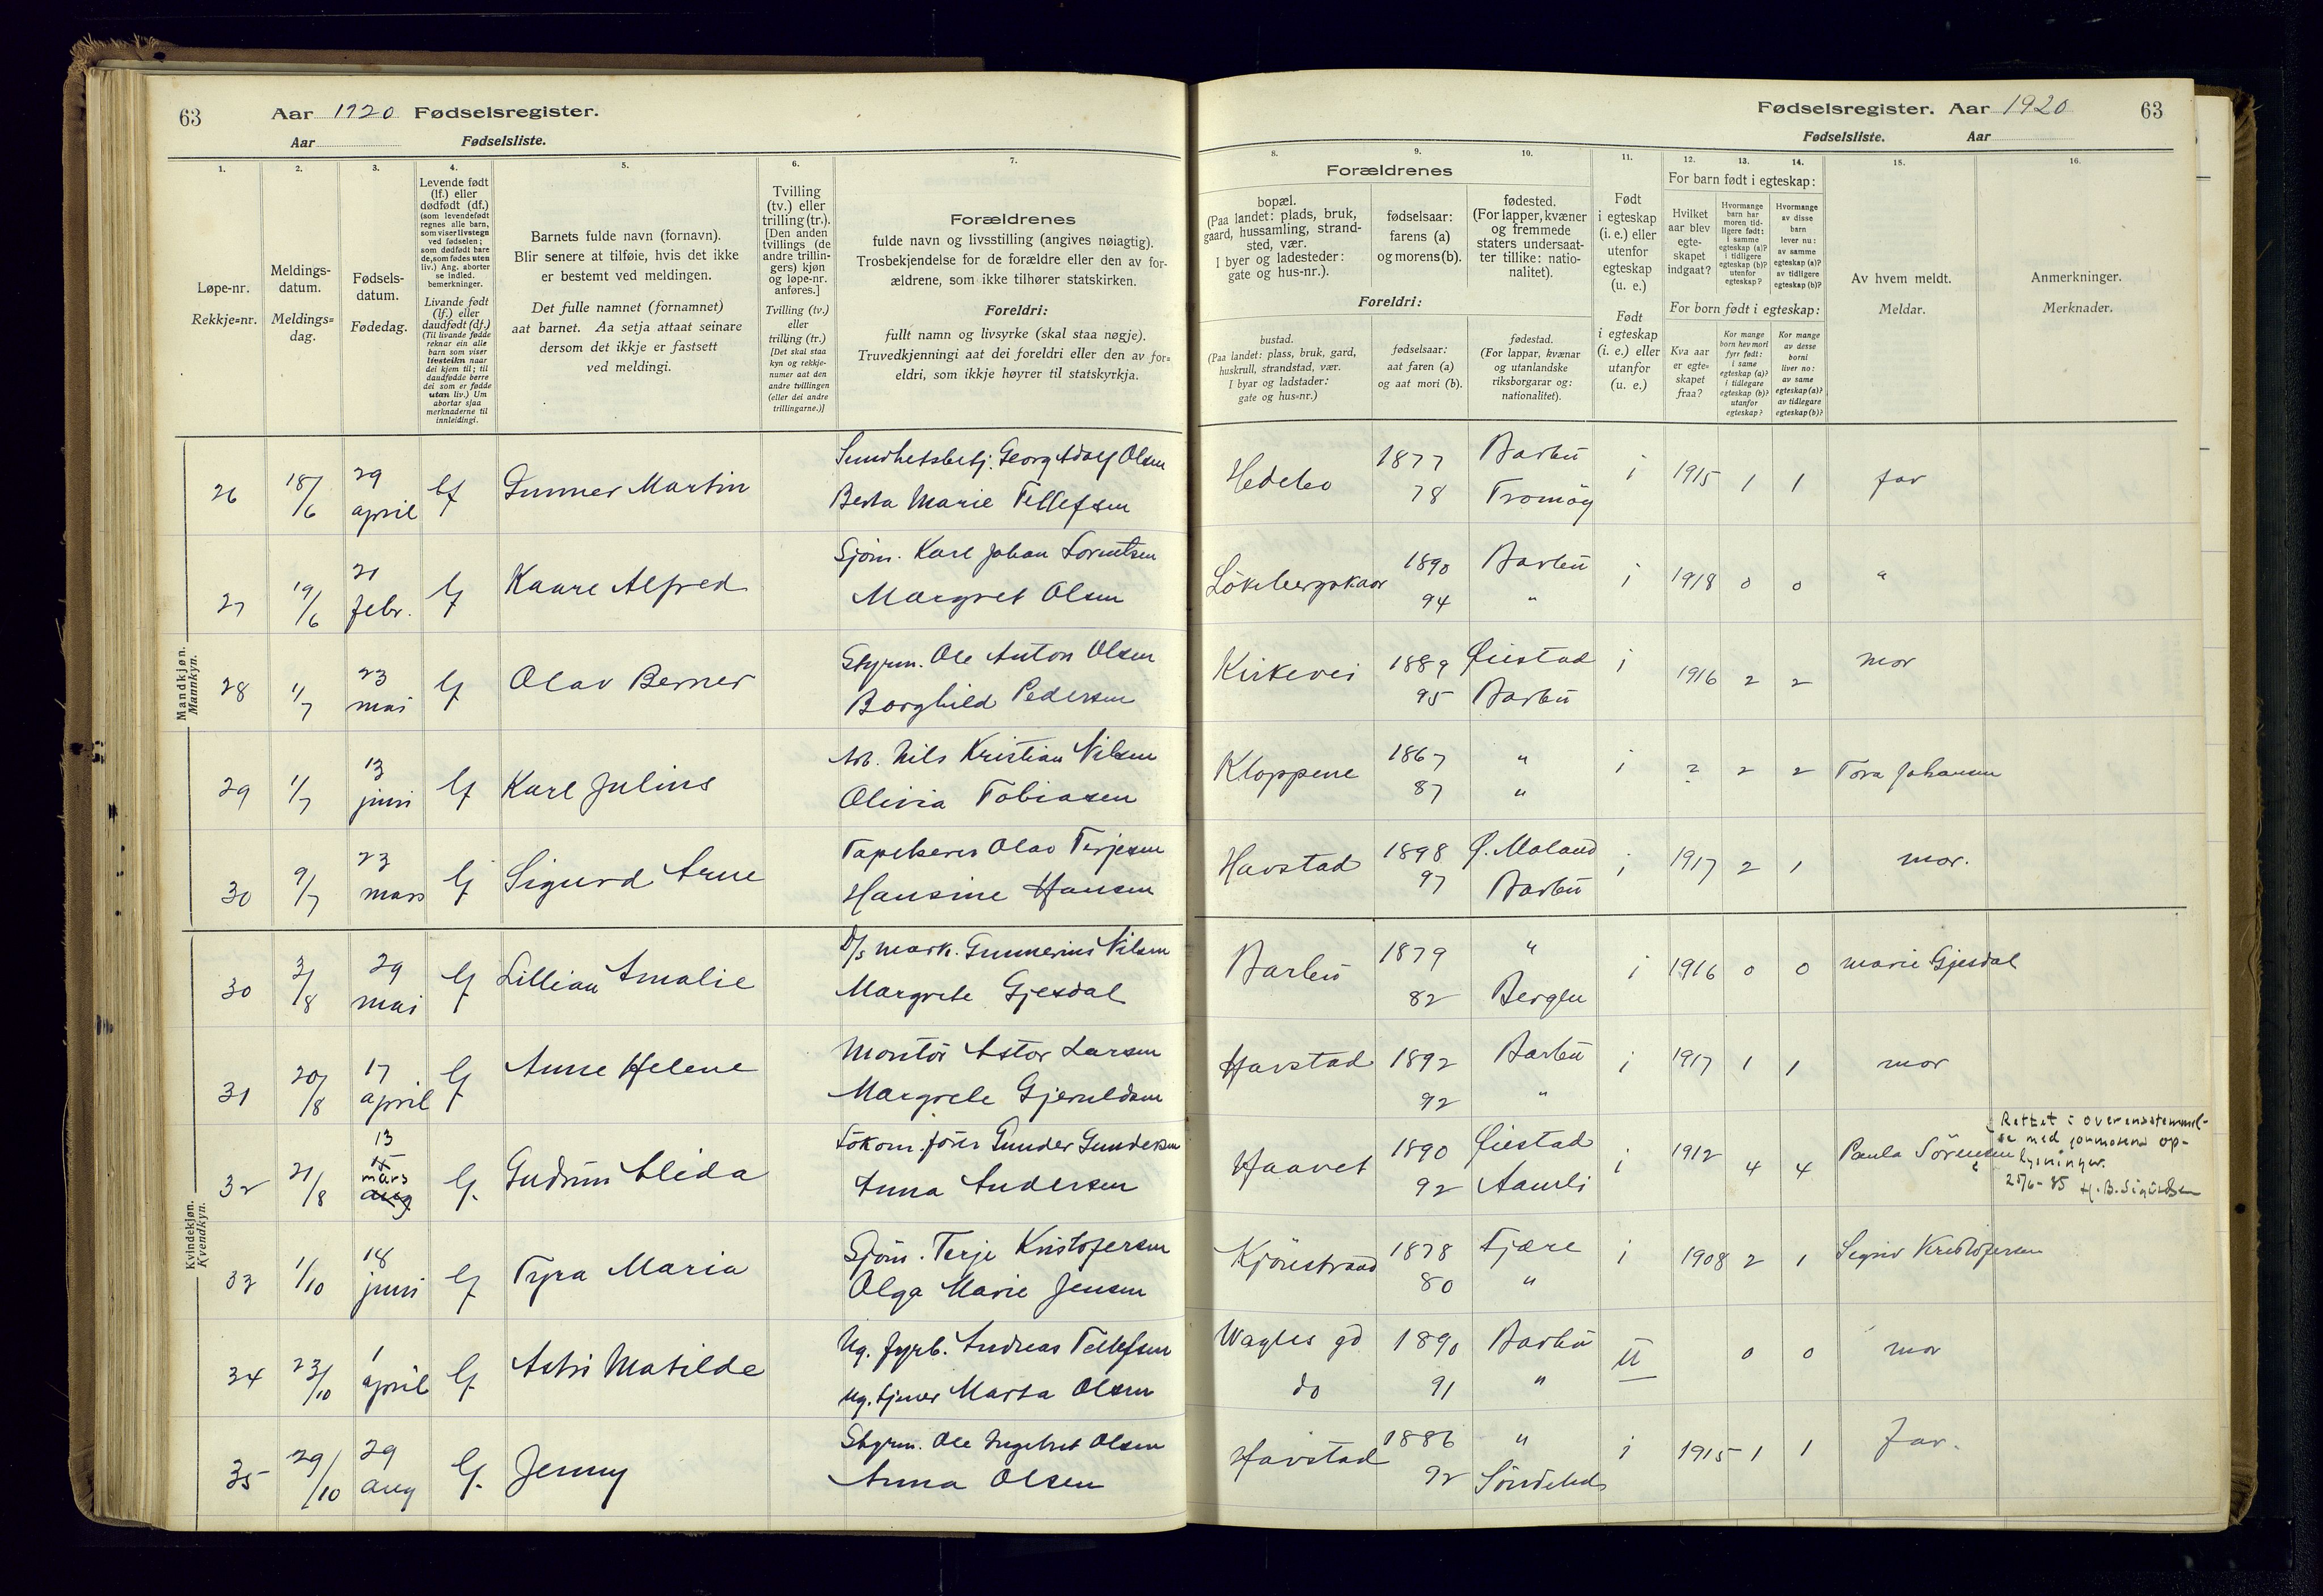 63
Aar 1920 Fødselsregister.
Aar Fødselsliste.
1.
2.
3.
4.
5.
6.
7.
Løpe-nr.
Rekkje=nr.
Meldings-
datum.
Meldings=
dag.
Fødsels-
datum.
Fødedag.
Levende født
(lf.) eller
dødfødt (df.)
(som levendefødt
regnes alle barn,
som viser livstegn
ved fødselen;
som dødfødt bare
de, som fødes uten
liv.) Ang. aborter
se indled.
bemerkninger.
Livande født
(lf.) eller
daudfødt (df.)
(Til livande fødde
reknar ein alle
barn som viser
livsteikn naar
dei kjem til; til
daudfødde berre
dei som er fødde
utan liv.) Um
abortar sjaa
merknaderne til
innleidingi.
Barnets fulde navn (fornavn).
Blir senere at tilføie, hvis det ikke
er bestemt ved meldingen.
Det fulle namnet (fornamnet)
aat barnet. Aa setja attaat seinare
dersom det ikkje er fastsett
ved meldingi.
Tvilling
(tv.) eller
trilling (tr.).
[Den anden
tvillings (de
andre trillin-
gers) kjøn
og løpe-nr.
anføres.]
Tvilling (tv.)
eller
trilling (tr.)
[Det skal staa
kyn og rekkje-
numer aat den
andre tvillingen
(eller dei andre
trillingarne.)]
Forældrenes
fulde navn og livsstilling (angives nøiagtig).
Trosbekjendelse for de forældre eller den av for-
ældrene, som ikke tilhører statskirken.
Foreldri:
fullt namn og livsyrke (skal staa nøgje).
Truvedkjenningi aat dei foreldri eller den av for=
eldri, som ikkje høyrer til statskyrkja.
Mandkjøn.
Mannkyn.
26 18/6 29 april lf Gunner Martin
Sundhetsbetj. Georg Adolf Olsen
Berta Marie Tellefsen
27 19/6 21 febr. lf Kaare Alfred
Sjøm. Karl Johan Lorentsen
Margret Olsen
28 1/7 23 mai lf Olav Berner
Styrm. Ole Anton Olsen
Borghild Pedersen
29 1/7 13 juni lf Karl Julius
Arb. Nils Kristian Nilsen
Olivia Tobiasen
30 9/7 23 mars lf Sigurd Arne
Tapetserer Olav Terjesen
Hansine Hansen
Kvindekjøn.
Kvendkyn.
30 3/8 29 mai lf Lillian Amalie
D/s mask. Gunnerius Nilsen
Margrete Gjesdal
31 20/8 17 april lf Anne Helene
Montör Astor Larsen
Margrete Gjeruldsen
32 21/8 13 15 mars aug lf. Gudrun Alida
Lokom. förer Gunder Gundersen
Anna Andersen
33 1/10 18 juni lf Tyra Maria
Sjøm. Terje Kristofersen
Olga Marie Jensen
34 23/10 1 april lf Astri Matilde
Ug. fyrb. Andreas Tellefsen
ug. tjener Marta Olsen
35 29/10 29 aug lf. Jenny
Styrm. Ole Ingebret Olsen
Anna Olsen
Fødselsregister. Aar 1920
63
Fødselsliste. Aar
8.
9.
10.
11.
12.
13.
14.
15.
16.
Forældrenes
bopæl.
(Paa landet: plads, bruk,
gaard, hussamling, strand-
sted, vær.
I byer og ladesteder:
gate og hus-nr.).
fødselsaar:
farens (a)
og morens (b).
fødested.
(For lapper, kvæner
og fremmede
staters undersaat-
ter tillike: natio-
nalitet).
Foreldri:
bustad.
(Paa landet: plass, bruk, gard,
huskrull, strandstad, vær.
I byar og ladstader:
gate og hus=nr.)
fødselsaar:
aat faren (a)
og aat mori (b).
fødestad.
(For lappar, kvænar
og utanlandske
riksborgarar og:
nationalitet).
Født
i egteskap
(i. e.) eller
utenfor
egteskap
(u. e.)
Født
i egteskap
(i. e.) eller
utanfor
(u. e.)
For barn født i egteskap:
Hvilket
aar blev
egte-
skapet
indgaat?
Hvormange
barn har
moren tid-
ligere født:
i samme
egteskap (a)?
i tidligere
egteskap (b)?
utenfor
egteskap?
Hvormange
av disse
barn
lever nu:
av samme
egteskap (a)?
av tidligere
egteskap (b)?
For born født i egteskap:
Kva aar
er egte=
skapet
fraa?
Kor mange
born hev mori
fyrr født:
i same
egteskap (a)?
i tidlegare
egteskap (b)?
utanfor
egteskap?
Kor mange
av desse
borni
liver no:
av same
egteskap (a)?
av tidlegare
egteskap (b)?
Av hvem meldt.
Meldar.
Anmerkninger.
Merknader.
Hedebo 1877 Barbu i 1915 1 1 far
78 Tromöy
Lökebergskaar 1890 Barbu i 1918 0 0 "
94 "
Kirkevei 1889 Øiestad i 1916 2 2 mor
95 Barbu
Kloppene 1867 " i ? 2 2 Tora Johansen
87 "
Havstad 1898 Ø. Moland i 1917 2 1 mor.
97 Barbu
Barbu 1879 " i 1916 0 0 Marie Gjesdal
82 Bergen
Havstad 1892 Barbu i 1917 1 1 mor
92 "
Haavet 1890 Øiestad i 1912 4 4 Paula Sörensen
92 Aamli
Rettet i overensstemmel-
se med jormorens op-
lysninger.
25/6-85 H.B. Sigurdsen
Kjönstrand 1878 Fjære i 1908 2 1 Signe Kristofersen
80 "
Wagles gd 1890 Barbu u 0 0 mor
do 91 "
Havstad 1886 " i 1915 1 1 Far.
92 Söndeled